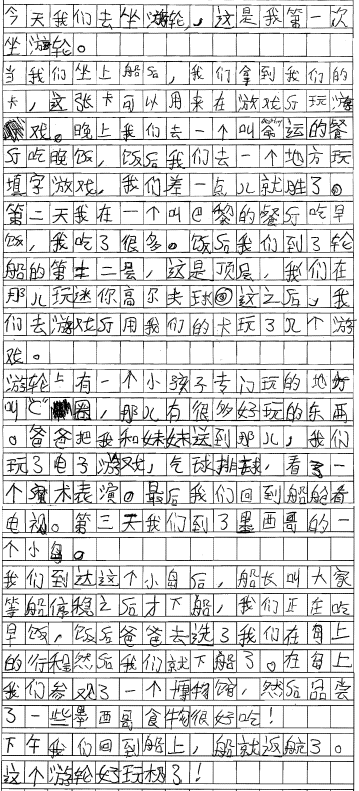 今天我们去坐游轮，这是我第一次
坐游轮。
当我们坐上船后，我们拿到我们的
卡，这张卡可以用来在游戏厅玩游
戏。晚上我们去一个叫幸运的餐
厅吃晚饭，饭后我们去一个地方玩
填字游戏，我们差一点儿就胜了。
第二天我在一个叫巴黎的餐厅吃早
饭，我吃了很多。饭后我们到了轮
船的第十二层，这是顶层，我们在
那儿玩迷你高尔夫球。这之后，我
们去游戏厅用我们的卡玩了几个游
戏。
游轮上有一个小孩子专门玩的地方
叫C圈，那儿有很多好玩的东西
。爸爸把我和妹妹送到那儿，我们
玩了电子游戏，气球排球，看了一
个魔术表演。最后我们回到船舱看
电视。第三天我们到了墨西哥的一
个小岛。
我们到达这个小岛后，船长叫大家
等船停稳之后才下船，我们正在吃
早饭，饭后爸爸去选了我们在岛上
的行程然后我们就下船了。在岛上
我们参观了一个博物馆，然后品尝
了一些墨西哥食物很好吃！
下午我们回到船上，船就返航了。
这个游轮好玩极了！